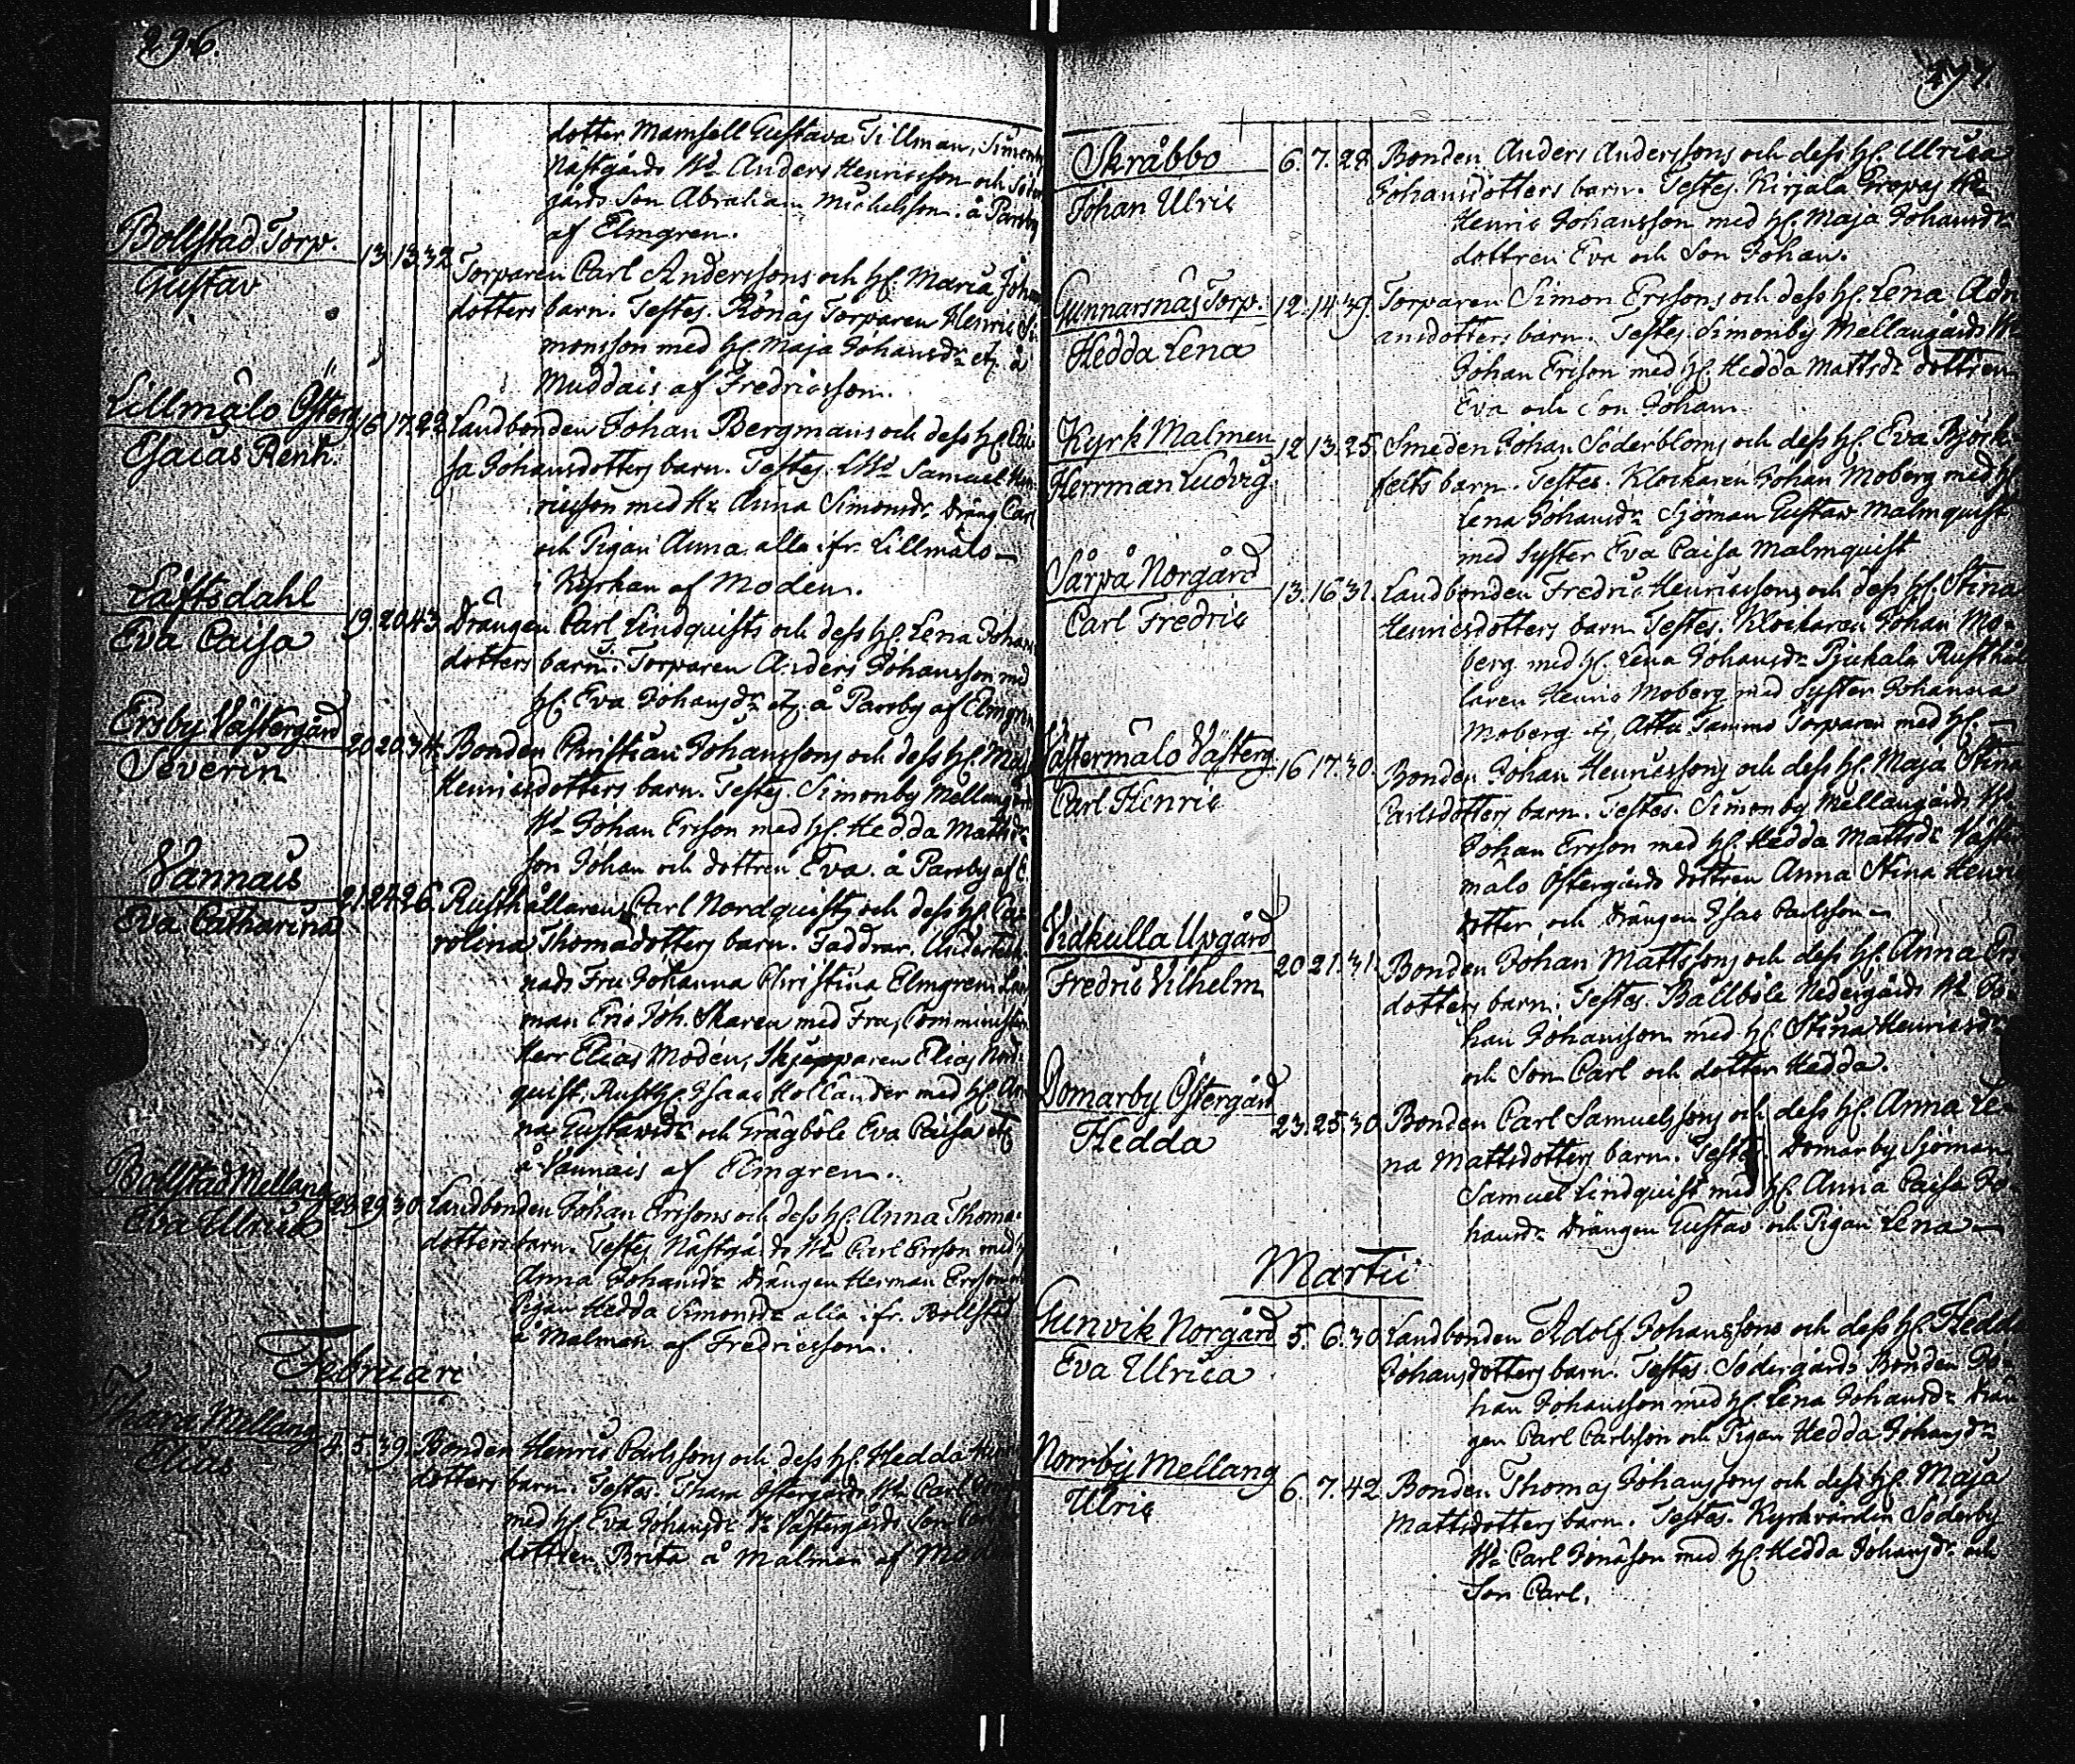 296.
dotter Mamsell Gustava Tillman, Simonby
Nästgårds Wd Anders Henricsson och Söder
gårds Son Abraham Michelsson. å Parsby
af Elmgren.
Bollstad Torp.
Gustav
13. 13. 32
Torparen Carl Anderssons och H. Maria Johans
dotters barn. Testes. Rönäs Torparen Henric Si
monsson med H. Maja Johansdr etc. å
Muddais af Fredricsson.
Lillmälö Österg
Esaias Renh.
16. 17. 22
Landbonden Johan Bergmans och dess H. Cai
sa Johansdotters barn. Testes. Samuel Hen
ricsson med Anna Simonsdr Dräng Carl
och Pigan Anna alla ifr. Lillmälö
i Kyrkan af Moden.
Låftsdahl
Eva Caisa
19. 20. 43.
Drängen Carl Lindquists och dess H. Lena Johans
dotters barn. T. Torparen Anders Johansson med
H. Eva Johansdr etc. å Parsby af Elmgren
Ersby Västergård
Severin
20. 20. 34.
Bonden Christian Johanssons och dess H. Maja
Henricsdotters barn. Testes. Simonby Mellangårds
Wd Johan Ersson med H. Hedda Mattsdr
son Johan och dottren Eva. å Parsby af E.
Vannais
Eva Catharina
21. 24. 26.
Rusthållarens Carl Nordquists och dess H. Ca
rolina Thomadotters barn. Faddrar. Underteck
nads Fru Johanna Christina Elmgren, Län
man Eric Joh. Skaren med Fru, Comminister
Herr Elias Modén, Skjepparen Elias Nord
quist, Rusth. Isaac Holländer med H. An
na Gustavsdr och Grägböle Eva Caisa etc
å Vannais af Elmgren.
Bollstad Mellang
Eva Ulrica
28. 29. 30.
Landbonden Johan Erssons och dess H. Anna Thoma
dotters barn. Testes Nästgårds Wd Carl Ersson med H
Anna Johansdr Drängen Herman Ersson och
Pigan Hedda Simonsdr alla ifr. Bollstad
å Malmen af Fredricsson.
Februari
Mellang
Elias
4. 5. 39.
Bonden Henric Carlssons och dess H. Hedda Henrics
dotters barn. Testes. Östergårds Wd Carl
med H. Eva Johansdr Västergårds Son Carl
dottren Brita å Malmen af Moden
297.
Skräbbo
Johan Ulric
6. 7. 28.
Bonden Anders Anderssons och dess H. Ulrica
Johansdotters barn. Testes. Kirjala Wd
Henric Johansson med H. Maja Johansdr
dottren Eva och Son Johan.
Gunnarsnäs Torp.
Hedda Lena
12. 14. 39.
Torparen Simon Erssons och dess H. Lena Adri
ansdotters barn. Testes. Simonby Mellangårds Wd
Johan Ersson med H. Hedda Mattsdr dottren
Eva och Son Johan
Kyrk Malmen
Herrman Ludvig
12. 13. 25.
Smeden Johan Söderbloms och dess H. Eva Björk
felts barn. Testes. Klockaren Johan Moberg med H.
Lena Johansdr Sjöman Gustaw Malmquist
med Syster Eva Caisa Malmquist
Särpå Norgård
Carl Fredric
13. 16. 31.
Landbonden Fredric Henricssons och dess H. Stina
Henricsdotters barn Testes. Klockaren Johan Mo-
berg med H. Lena Johansdr Pjukala Rusthål
laren Henric Moberg med Syster Johanna
Moberg Attu Sammo Torparen med H.
Västermälo Västerg
Carl Henric
16. 17. 30.
Bonden Johan Henricssons och dess H. Maja Stina
Carlsdotters barn. Testes. Simonby Mellangårds Wd
Johan Ersson med H. Hedda Mattsdr Väster
mälo Östergårds dottren Anna Stina Henrics
dotter och Drängen Isac Carlsson
Vidkulla Upgård
Fredric Vilhelm
20. 21. 31.
Bonden Johan Mattssons och dess H. Anna Ers
dotters barn. Testes. Ballböle Nedergårds Wd Jo-
han Johansson med H. Stina Henricsdr
och Son Carl och dotter Hedda.
Domarby Östergård
Hedda
23. 25. 30.
Bonden Carl Samuelssons och dess H. Anna Le-
na Mattsdotters barn. Testes. Domarby Sjöman
Samuel Lindquist med H. Anna Caisa Jo-
hansdr Drängen Gustav och Pigan Lena
Martii
Gunvik Norgård
Eva Ulrica
5. 6. 30.
Landbonden Adolf Johanssons och dess H. Hedda
Johansdotters barn. Testes. Södergårds Bonden Jo-
han Johansson med H. Lena Johansdr Drän
gen Carl Carlsson och Pigan Hedda Johansdr
Norrby Mellang
Ulric
6. 7. 42
Bonden Thomas Johanssons och dess H. Maja
Mattsdotters barn. Testes. Kyrkvärden Söderby
Wd Carl Jonasson med H. Hedda Johansdr och
Son Carl.